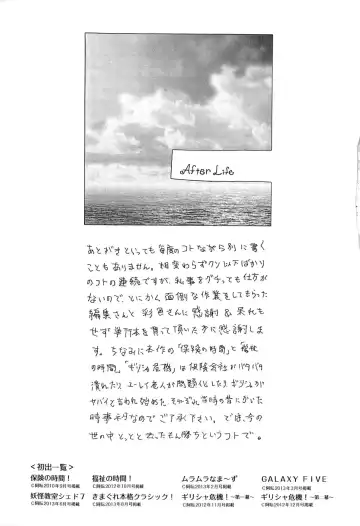 After Life
あとがきといっても毎度のコトながら別に書く
こともありません。相変わらずクソ以下ばかり
のコトの連続ですが、私事をグチっても仕方が
ないので とにかく面倒な作業をしてもらった
編集さんと 彩色さんに 感謝 & 呆れも
せず 単行本を買って頂いた方に感謝しま
す。ちなみに本作の「保険の時間」と「福祉
の時間」、「ギリシャ危機」は 保険会社がバタバタ
潰れたり
ヤバイと言われ始めた
時事ネタなので ご了承下さい。では、今の
世の中 とっとと 勝ちというコトで。
<初出一覧>
保険の時間!
©桐坂2010年5月号掲載
福祉の時間!
©桐坂2012年10月号掲載
ムラムラなま～ず
©桐坂2013年2月号掲載
GALAXY FIVE
©桐坂2013年3月号掲載
妖怪教室シェド7
©桐坂2013年6月号掲載
きまぐれ本格クラシック!
©桐坂2013年8月号掲載
ギリシャ危機!～第一幕～
©桐坂2012年11月号掲載
ギリシャ危機!～第二幕～
©桐坂2012年12月号掲載